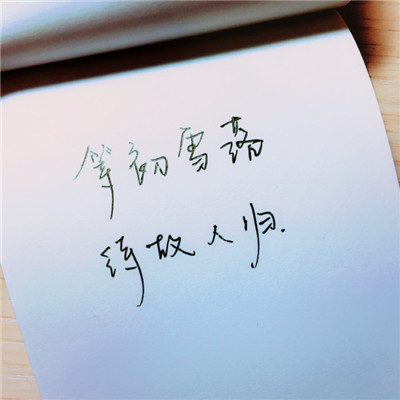 等初雪落
待故人归.